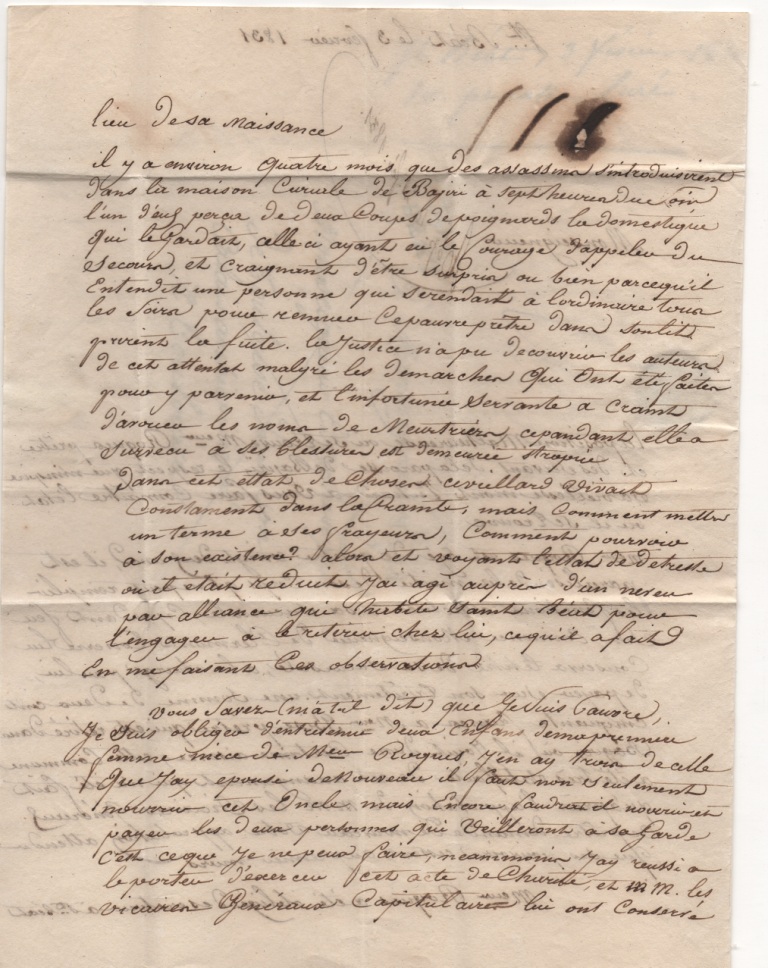 lieu de sa Naissance
il y a environ quatre mois que des assassins s'introduisirent
dans la maison Curiale de Bajiri à sept heures du soir
l'un d'eux perça de deux Coups de poignards la domestique
qui le Gardait, celle ci ayant eu le Courage d'appeler du
secours, et craignant d'être surpris ou bien parcequ'il
Entendit une personne qui serendait à l'ordinaire tous
les soirs pour remuer Cepauvre prêtre dans sonlit
prirent la fuite. la Justice n'a pu decouvrir les auteurs
de cet attentat malgré les demarches qui Ont été faites
pour y parvenir, et l'infortunée Servante a craint
d'avouer les noms de Meurtriers cepandant elle a
Surveçu à ses blessures est demeurée stropiée
Dans cet êttat de Choses cevieillard vivait
Constament dans la Crainte, mais Comment mettre
un terme à ses frayeurs, Comment pourvoir
à son existence? alors et voyant l'êttat de detresse
ou il était reduit J'ai agi auprès d'un neveu
par alliance qui habite Saint Béat pour
l'engager à le retirer chez lui, cequ'il a fait
En me faisant Ces observations
Vous Savez (m'a til dit) que Je Suis Pauvre,
Je Suis obligeu d'entretenir deux Enfans dema première
femme niece de Meur Roques, J'en ay trois de celle
Que J'ay epousé deNouveau il faut non seulement
nourrir cet Oncle mais Encore faudrat il nourrir et
payer les deux personnes qui Veilleront à sa Garde
C'est ceque Je nepeux faire, neammoins J'ay reussi a
le porter d'exercer cet acte de Charité, et M. M. les
vicaires Généraux Capitulaires lui ont Conservé